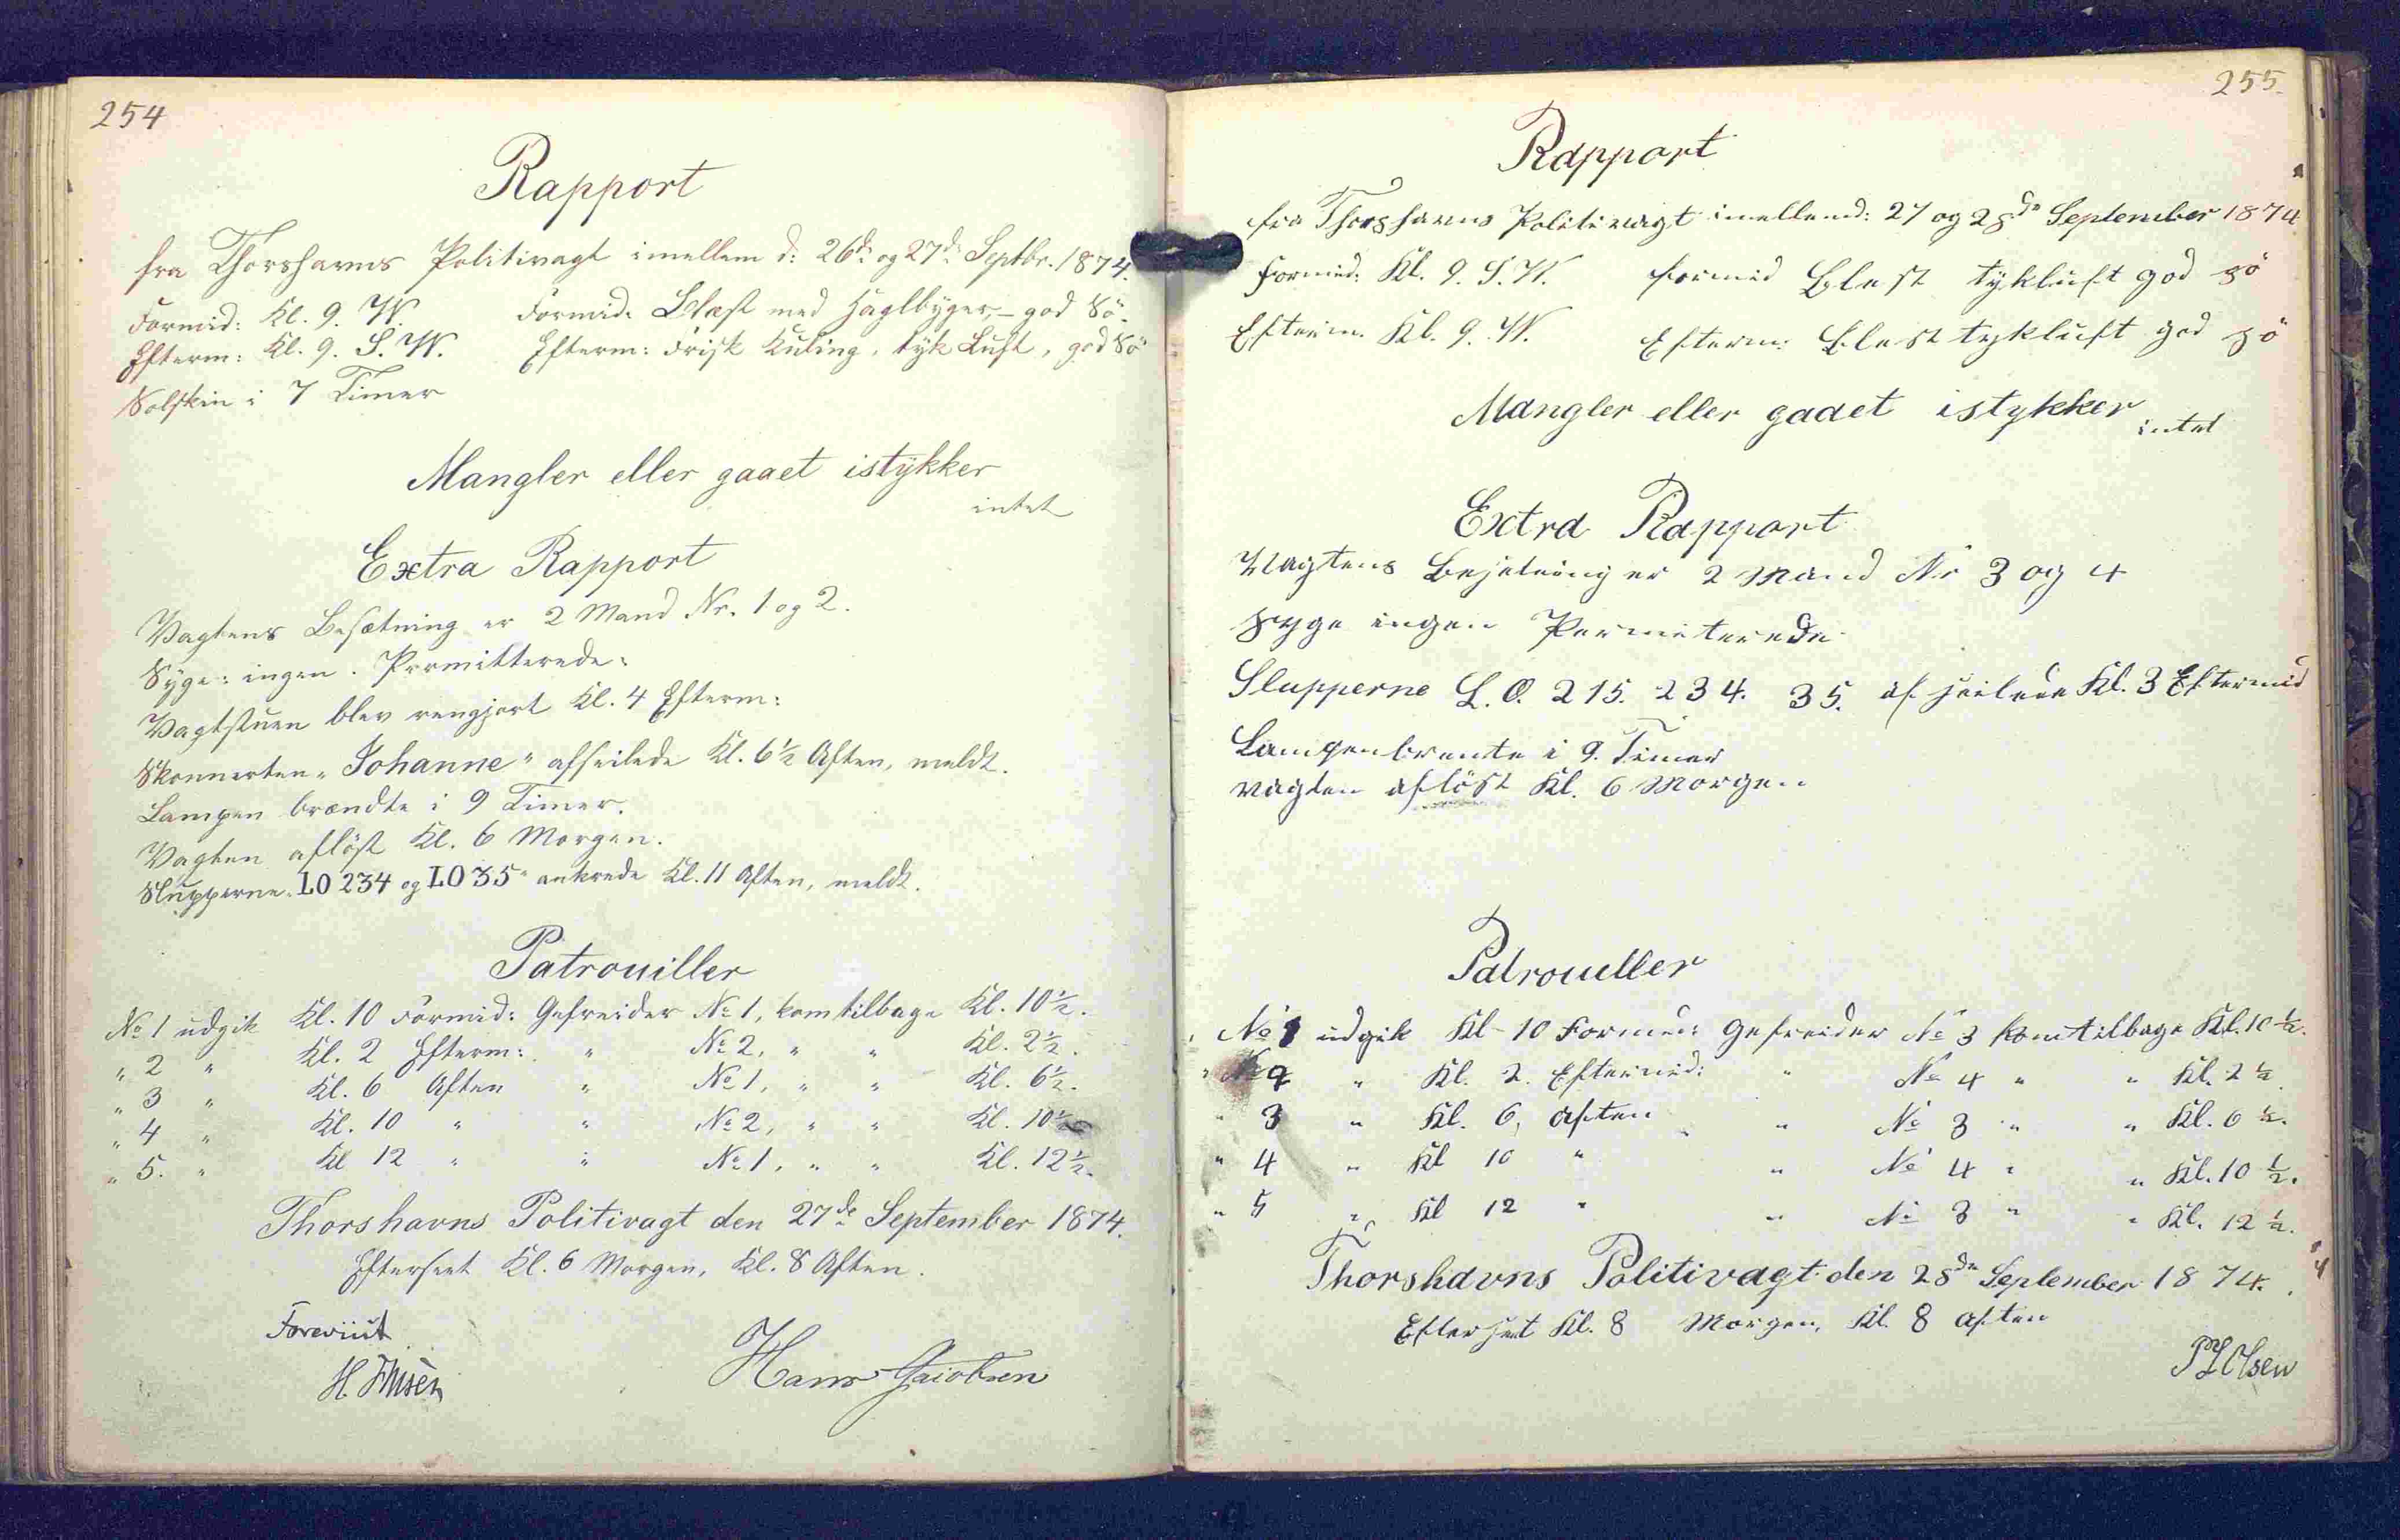 254
Rapport
fra Thorshavns Politivagt imellem d: 26de og 27de Septbr. 1874.
Formid: Kl. 9. W. Formid: Blæst med Haglbyger, – god Sö.
Efterm: Kl. 9. S.W. Efterm: Frisk Kuling, tyk Luft, god Sö
Solskin i 7 Timer
Mangler eller gaaet istykker
intet
Extra Rapport
Vagtens Besætning er 2 Mand Nr. 1 og 2.
Syge: ingen. Permitterede:
Vagtstuen blev rengjort Kl. 4 Efterm:
Skonnerten „Johanne" afseilede Kl. 6½ Aften, meldt.
Lampen brændte i 9 Timer.
Vagten aflöst Kl. 6 Morgen.
Slupperne „LO 234 og LO 35" ankrede Kl. 11 Aften, meldt.
Patrouiller
No 1 udgik Kl. 10 Formid: Gefreider No 1, kom tilbage Kl. 10½.
„ 2 „ Kl. 2 Efterm: „ No 2, „ „ Kl. 2½.
„ 3 „ Kl. 6 Aften „ No 1, „ „ Kl. 6½.
„ 4 „ Kl. 10 „ „ No 2, „ „ Kl. 10½
„ 5. „ Kl 12 „ „ No 1, „ „ Kl. 12½.
Thorshavns Politivagt den 27de September 1874.
Efterseet Kl. 6 Morgen, Kl. 8 Aften.
Foreviist
Hans Jacobsen
255.
Rapport
fra Thorshavns Politivagt imellemd: 27 og 28de September 1874
Formid: Kl. 9. S.W. formid Blest tykluft god sö
Efterm. Kl. 9. W. Efterm: Blest tykluft god sö
Mangler eller gaaet istykker intet
Extra Rapport
Vagtens Besetning er 2 Mand Nr 3 og 4
Syge ingen Permeterede
Slupperne L.O. 215. 234. 35. af seilede Kl. 3 Eftermid
Lampen brente i 9. Timer
vagten aflöst Kl. 6 Morgen
Patroueller
No 1 udgik Kl 10 Formid: Gefreider No 3 komtilbage Kl. 10 ½.
„ No 2 „ Kl. 2. Eftermid: „ No 4 „ „ Kl. 2 ½
„ 3 „ Kl. 6, aften „ No 3 „ „ Kl. 6 ½.
„ 4 „ Kl 10 „ „ No 4 „ „ Kl. 10 ½.
„ 5 „ Kl 12 „ „ No 3 „ „ Kl. 12 ½.
Thorshavns Politivagt den 28de September 1874.
Efterseet Kl. 8 Morgen, Kl. 8 aften
Olsen